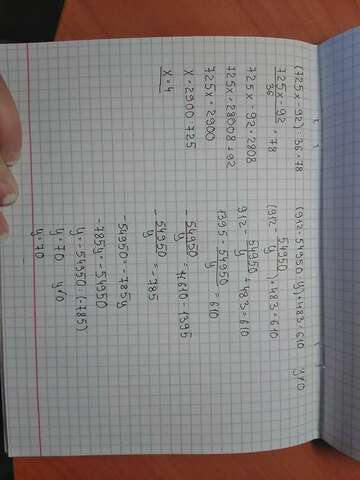 (725x - 92) : 36 = 78
725x - 92
36
= 78
725x - 92 = 2808
725x = 28008 + 92
725x = 2900
x = 2900 : 725
x = 4
(912 - 54950 : y) + 483 = 610 y≠0
(912 - 54950/y) + 483 = 610
912 - 54950/y + 483 = 610
1395 - 54950/y = 610
54950/y = 610 - 1395
54950/y = -785
-54950 = -785y
-785y = -54950
y = -54950 : (-785)
y = 70 y≠0
y = 70